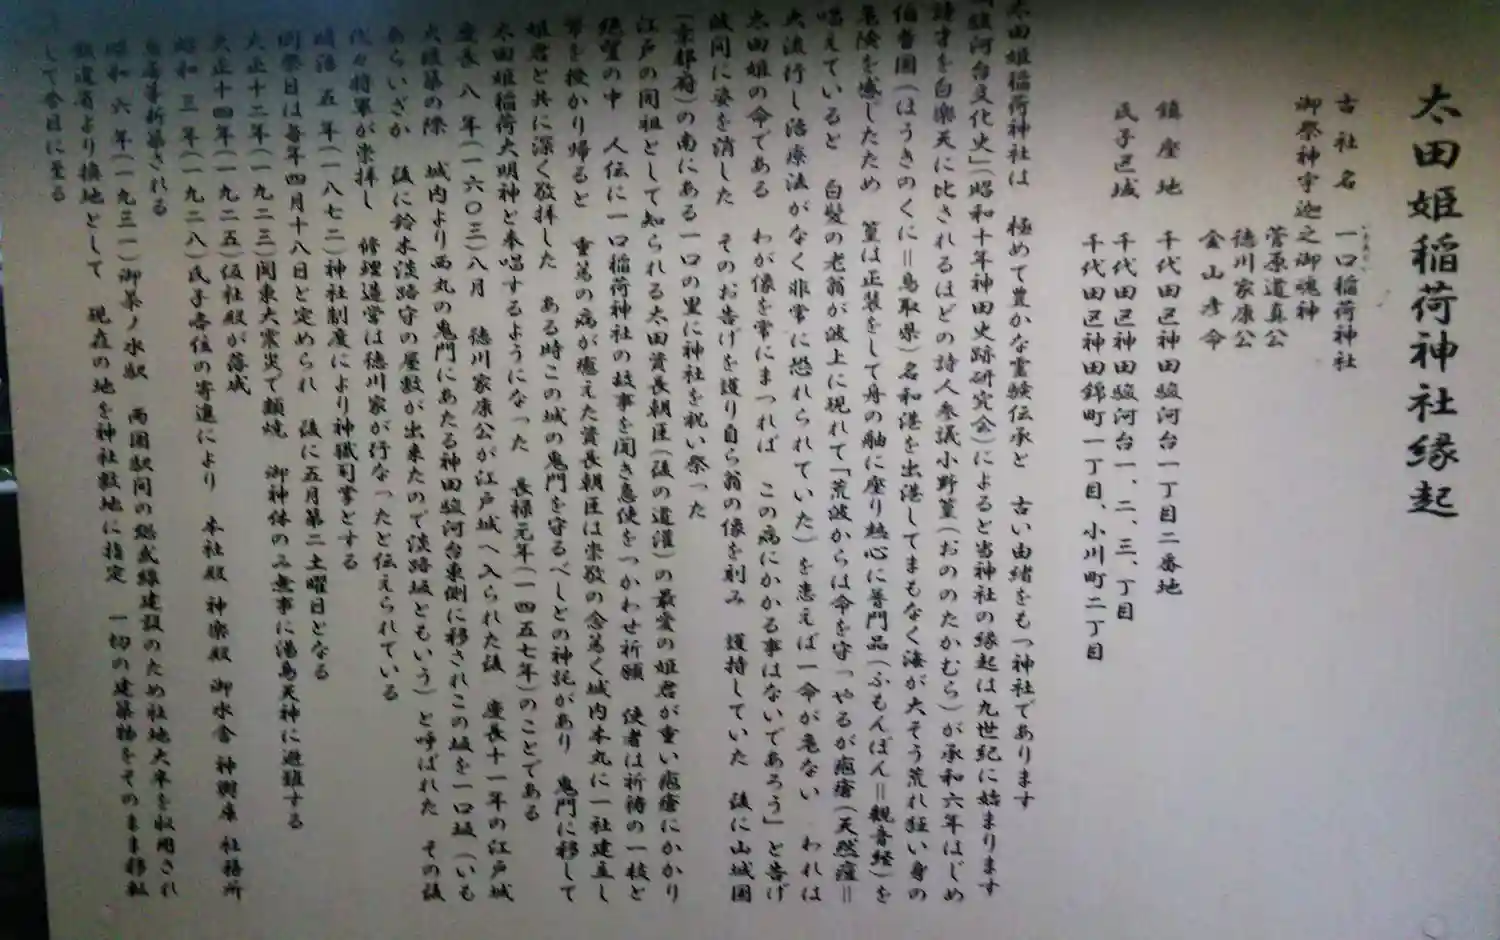 太田姫稲荷神社縁起
古社名 一口稲荷神社
いもあらい
御祭神宇迦之御魂神
菅原道真公
徳川家康公
金山彦命
鎮座地 千代田区神田駿河台一丁目二番地
氏子区域 千代田区神田駿河台一、二、三、丁目
千代田区神田錦町一丁目、小川町二丁目
太田姫稲荷神社は 極めて豊かな霊験伝承と 古い由緒をもつ神社であります
「駿河台文化史」(昭和十年神田史跡研究会)によると当神社の縁起は九世紀に始まります
詩才を白樂天に比されるほどの詩人参議小野篁(おののたかむら)が承和六年はじめ
伯耆国(ほうきのくに=鳥取県)名和港を出港してまもなく海が大そう荒れ狂い身の
危険を感じたため 篁は正装をして舟の舳に座り熱心に普門品(ふもんぼん=観音経)を
唱えていると 白髪の老翁が波上に現れて「荒波からは命を守つやるが疱瘡(天然痘=
大流行し治療法がなく非常に恐れられていた)を患えば一命が危ない われは
太田姫の命である わが像を常にまつれば この病にかかる事はないであろう」と告げ
波間に姿を消した そのお告げを護り自ら翁の像を刻み 護持していた 後に山城国
(京都府)の南にある一口の里に神社を祝い祭った
江戸の開祖として知られる太田資長朝臣(後の道灌)の最愛の姫君が重い疱瘡にかかり
絶望の中 人伝に一口稲荷神社の故事を聞き急使をつかわせ祈願 使者は祈祷の一枝と
幣を授かり帰ると 重篤の病が癒えた資長朝臣は崇敬の念篤く城内本丸に一社建立し
姫君と共に深く敬拝した ある時この城の鬼門を守るべしとの神託があり 鬼門に移して
太田姫稲荷大明神と奉唱するようになった 長禄元年(一四五七年)のことである
慶長八年(一六〇三)八月 徳川家康公が江戸城へ入られた後 慶長十一年の江戸城
大改築の際 城内より西丸の鬼門にあたる神田駿河台東側に移されこの坂を一口坂(いも
あらいざか 後に鈴木淡路守の屋敷が出来たので淡路坂ともいう)と呼ばれた その後
代々将軍が崇拝し 修理造営は徳川家が行なったと伝えられている
明治五年(一八七二)神社制度により神職司掌とする
例祭日は毎年四月十八日と定められ 後に五月第二土曜日となる
大正十二年(一九二三)関東大震災で類焼 御神体のみ無事に湯島天神に避難する
大正十四年(一九二五)仮社殿が落成
昭和三年(一九二八)氏子各位の寄進により 本社殿 神楽殿 御水舎 神輿庫 社務所
等新築される
昭和六年(一九三一)御茶ノ水駅 両国駅間の総武線建設のため社地大半を収用され
鉄道省より換地として 現在の地を神社敷地に指定 一切の建築物をそのまま移転
して今日に至る